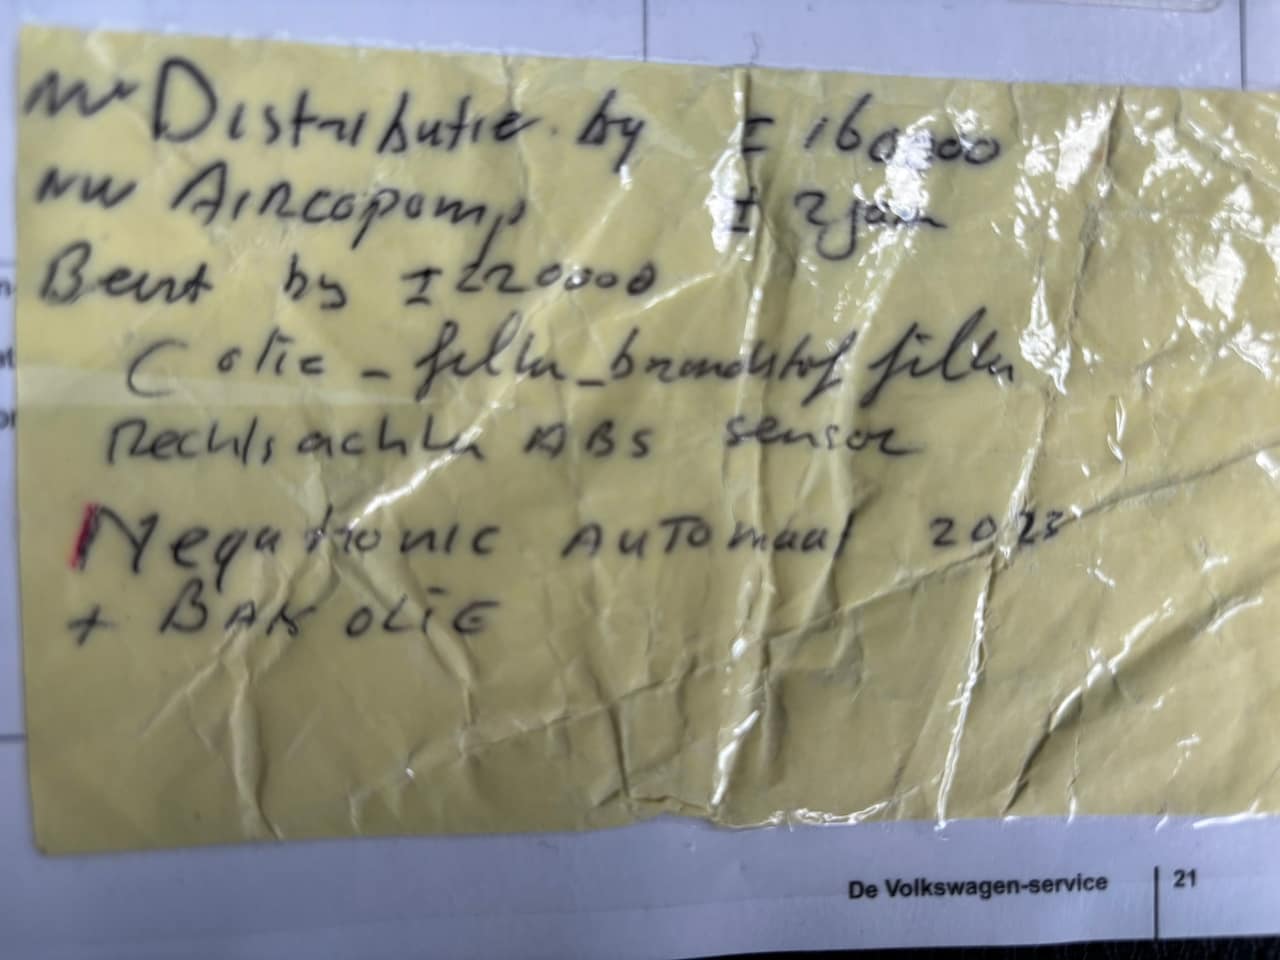 nw Distributie. by ± 160000
nw Aircopomp ± 2 jaar
Beurt by ± 220000
( olie - filter - brandstof filter
Rechts achter ABS sensor
Megatronic Automaat 2023
+ BAK OLIE
De Volkswagen-service 21